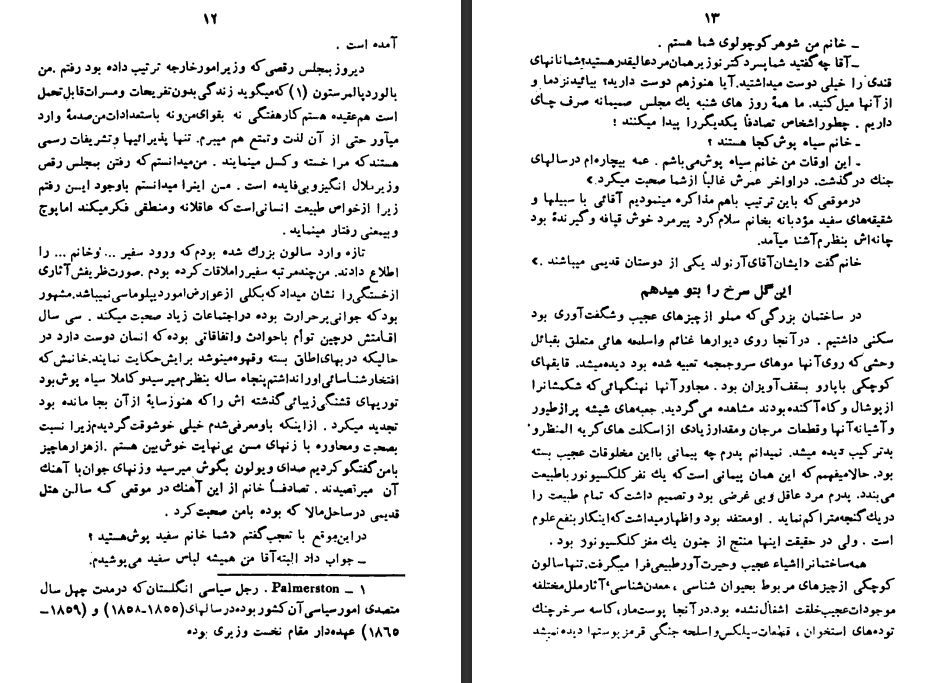 ۱۲
آمده است .
دیروز بمجلس رقصی که وزیر امور خارجه ترتیب داده بود رفتم . من
با لورد پالمرستون (۱) که میگوید زندگی بدون تفریحات و مسرات قابل تحمل
است هم عقیده هستم کار هفتگی نه بقوای من و نه باستعدادات من صدمهٔ وارد
میآور حتی از آن لذت و تمتع هم میبرم. تنها پذیرائیها و تشریفات رسمی
هستند که مرا خسته و کسل مینمایند . من میدانستم که رفتن بمجلس رقص
وزیر ملال انگیز و بی فایده است . من اینرا میدانستم باوجود این رفتم
زیرا از خواص طبیعت انسانی است که عاقلانه و منطقی فکر میکند اما پوچ
و بیمعنی رفتار مینماید .
تازه وارد سالون بزرگ شده بودم که ورود سفیر ... و خانم ... را
اطلاع دادند. من چند مرتبه سفیر را ملاقات کرده بودم . صورت ظریفش آثاری
از خستگی را نشان میداد که بکلی از عوارض امور دیپلوماسی نمیباشد. مشهور
بود که جوانی پر حرارت بوده در اجتماعات زیاد صحبت میکند . سی سال
اقامتش در چین توأم با حوادث و اتفاقاتی بوده که انسان دوست دارد در
حالیکه دربهای اطاق بسته و قهوه مینوشد برایش حکایت نمایند. خانمش که
افتخار شناسائی او را نداشتم پنجاه ساله بنظرم میرسید و کاملا سیاه پوش بود
توریهای قشنگی زیبائی گذشته اش را که هنوز سایهٔ از آن بجا مانده بود
تجدید میکرد . از اینکه باو معرفی شدم خیلی خوشوقت گردیدم زیرا نسبت
بصحبت و محاوره با زنهای مسن بی نهایت خوش بین هستم . از هزارها چیز
با من گفتگو کردیم صدای ویولون بگوش میرسید و زنهای جوان با آهنگ
آن میرقصیدند . تصادفاً خانم از این آهنگ در موقعی که سالن هتل
قدیمی در ساحل مالا که بوده با من صحبت کرد .
در این موقع با تعجب گفتم «شما خانم سفید پوش هستید ؟
ــ جواب داد البته آقا من همیشه لباس سفید می‌پوشیدم.
۱ ــ Palmerston . رجل سیاسی انگلستان که در مدت چهل سال
متصدی امور سیاسی آن کشور بوده در سالهای (۱۸۵۵-۱۸۵۸) و (۱۸۵۹ــ
۱۸۶۵) عهده‌دار مقام نخست وزیری بوده
۱۳
ــ خانم من شوهر کوچولوی شما هستم .
ــ آقا چه گفتید شما پسر دکتر نوزیر همان مرد عالیقدر هستید؟ شما نانهای
قندی را خیلی دوست میداشتید. آیا هنوز هم دوست دارید؟ بیائید نزد ما و
از آنها میل کنید. ما همهٔ روز های شنبه یك مجلس صمیمانه صرف چای
داریم . چطور اشخاص تصادفاً یکدیگر را پیدا میکنند !
ــ خانم سیاه پوش کجا هستند ؟
ــ این اوقات من خانم سیاه پوش می‌باشم . عمه بیچاره ام در سالهای
جنك در گذشت. در اواخر عمرش غالباً از شما صحبت میکرد.»
در موقعی که باین ترتیب باهم مذاکره مینمودیم آقائی با سبیلها و
شقیقه‌های سفید مؤدبانه بخانم سلام کرد پیر مرد خوش قیافه و گیرندهٔ بود
چانه‌اش بنظرم آشنا میآمد.
خانم گفت «ایشان آقای آرنولد یکی از دوستان قدیمی میباشند .»
این گل سرخ را بتو میدهم
در ساختمان بزرگی که مملو از چیزهای عجیب و شگفت‌آوری بود
سکنی داشتیم . در آنجا روی دیوارها غنائم و اسلحه هائی متعلق بقبائل
وحشی که روی آنها موهای سر و جمجمه تعبیه شده بود دیده میشد. قایقهای
کوچکی با پارو بسقف آویزان بود . مجاور آنها نهنگهائی که شکمشانرا
از پوشال و کاه آکنده بودند مشاهده می گردید. جعبه‌های شیشه پر از طیور
و آشیانه آنها و قطعات مرجان و مقدار زیادی از اسکلت های کریه المنظر و
بدترکیب دیده میشد. نمیدانم پدرم چه پیمانی با این مخلوقات عجیب بسته
بود. حالا میفهمم که این همان پیمانی است که یك نفر کلکسیونور با طبیعت
می‌بندد. پدرم مرد عاقل و بی غرضی بود و تصمیم داشت که تمام طبیعت را
در یك گنجه متراکم نماید . او معتقد بود و اظهار میداشت که اینکار بنفع علوم
است . ولی در حقیقت اینها منتج از جنون یك مغز کلکسیونور بود .
همه ساختمانرا اشیاء عجیب و حیرت آور طبیعی فرا میگرفت. تنها سالون
کوچکی از چیزهای مربوط بحیوان شناسی ، معدن‌شناسی ، آثار ملل مختلفه
موجودات عجیب خلقت اشغال نشده بود. در آنجا پوست مار، کاسه سر خرچنك
توده‌های استخوان ، قطعات سیلکس و اسلحه جنگی قرمز پوستها دیده نمیشد